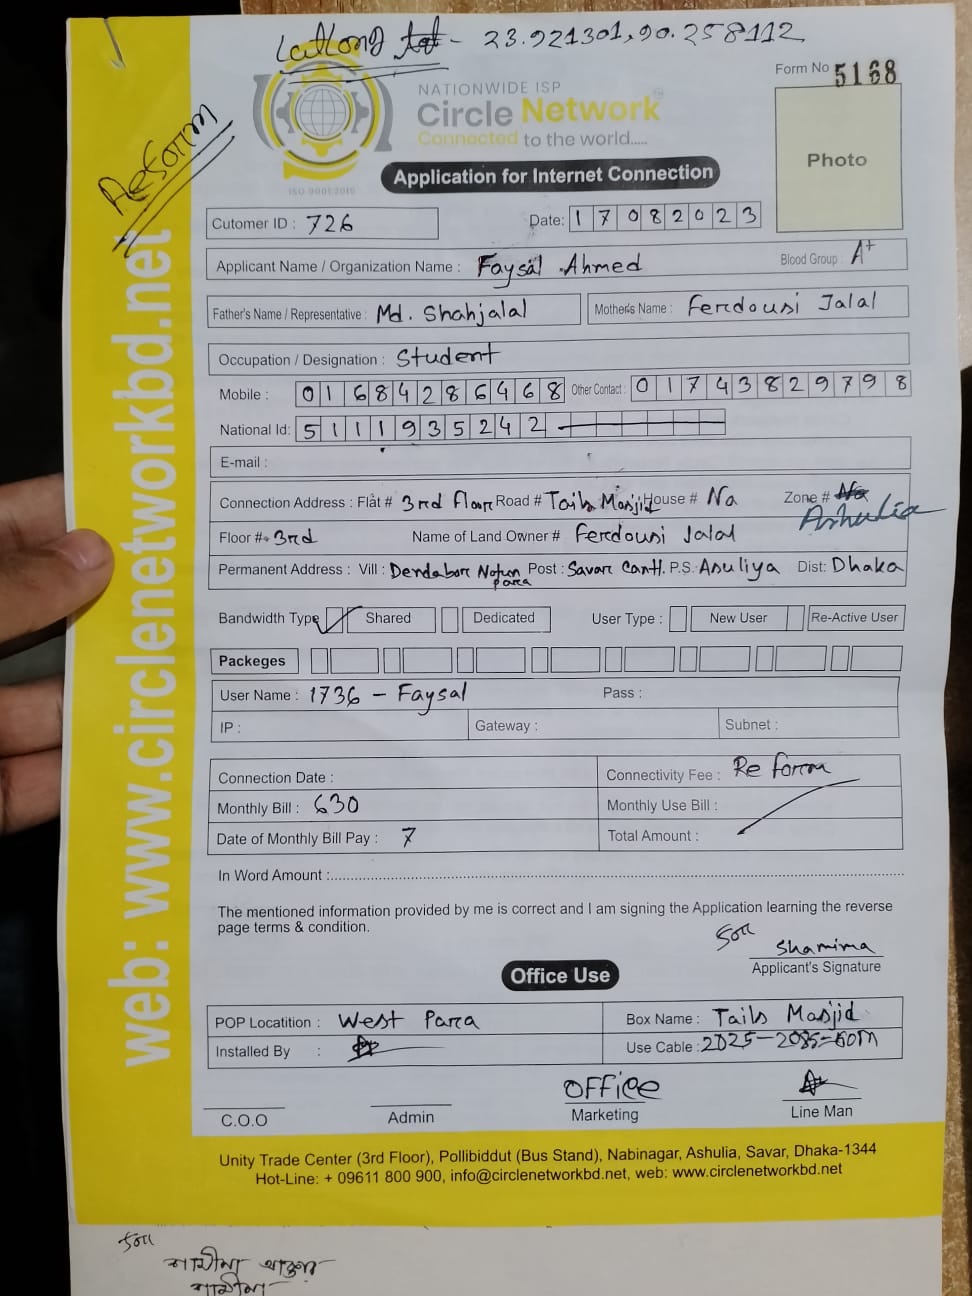 LatLong - 23.921301,90.258112
Form No 5168
Reform
NATIONWIDE ISP
Circle Network
Connected to the world.....
ISO 9001:2015
Photo
Application for Internet Connection
Cutomer ID : 726 Date: 17082023
Applicant Name / Organization Name : Faysal Ahmed Blood Group : A+
Father's Name / Representative : Md. Shahjalal Mother's Name : Ferdousi Jalal
Occupation / Designation : Student
Mobile : 01684286468 Other Contact : 01743829798
National Id: 5111935242
E-mail :
Connection Address : Flat # 3rd floor Road # Tails Masjid House # Na Zone # Na Ashulia
Floor # 3rd Name of Land Owner # Ferdousi Jalal
Permanent Address : Vill : Dendabor Notun Para Post : Savar Cantt. P.S. Asuliya Dist: Dhaka
Bandwidth Type Shared Dedicated User Type : New User Re-Active User
Packeges
User Name : 1736 - Faysal Pass :
IP : Gateway : Subnet :
Connection Date : Connectivity Fee : Re form
Monthly Bill : 630 Monthly Use Bill :
Date of Monthly Bill Pay : 7 Total Amount :
In Word Amount :
The mentioned information provided by me is correct and I am signing the Application learning the reverse
page terms & condition.
Shamima
Applicant's Signature
Office Use
POP Locatition : West Para Box Name : Tails Masjid
Installed By : Use Cable : 2025-2085=60m
OFFice
C.O.O Admin Marketing Line Man
Unity Trade Center (3rd Floor), Pollibiddut (Bus Stand), Nabinagar, Ashulia, Savar, Dhaka-1344
Hot-Line: + 09611 800 900, info@circlenetworkbd.net, web: www.circlenetworkbd.net
web: www.circlenetworkbd.net
শামীমা আক্তার
শামীমা